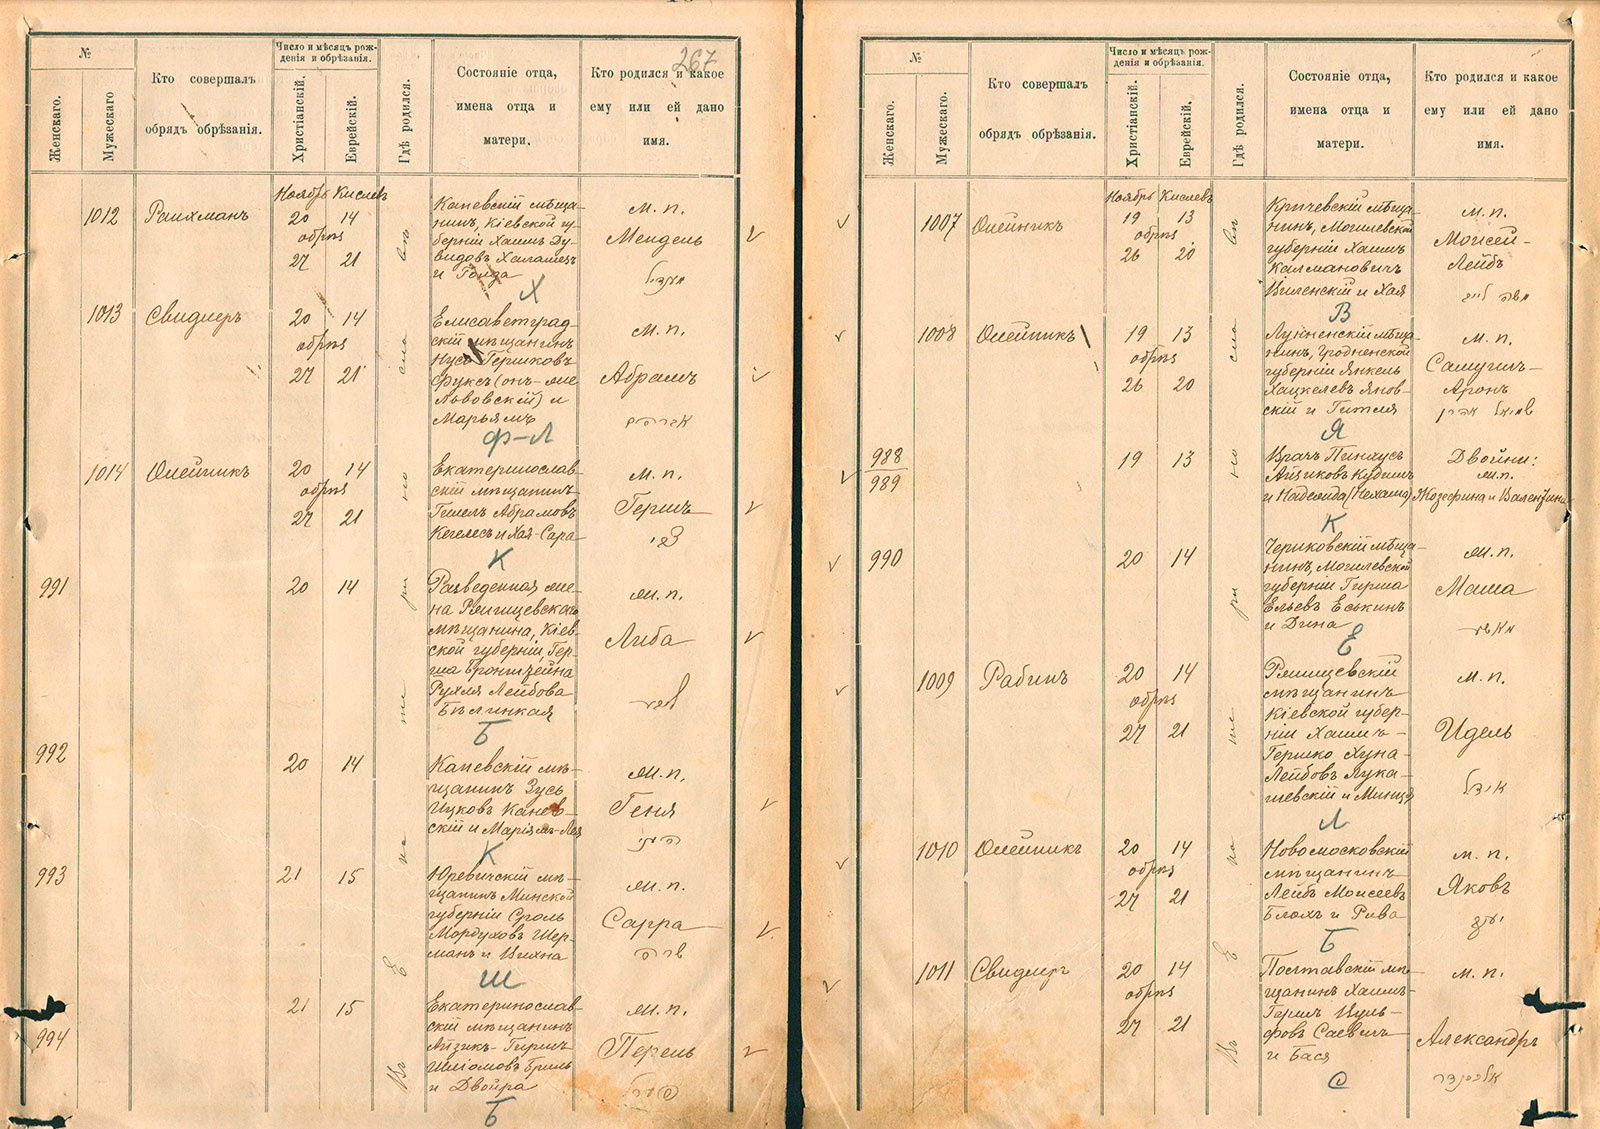 267
№
Женскаго.
Мужескаго
Кто совершалъ
обрядъ обрѣзанія.
Число и мѣсяцъ рож-
денія и обрѣзанія.
Христіанскій.
Еврейскій.
Гдѣ родился.
Состояніе отца,
имена отца и
матери.
Кто родился и какое
ему или ей дано
имя.
Въ Екатеринославѣ
Ноябрь Кислевъ
1012 Райхманъ 20 14
обрѣз
27 21
Каневскій мѣща-
нинъ, Кіевской гу-
берніи Хаимъ Ду-
видовъ
и Голда
Х
м. п.
Мендель
מענדיל
1013 Свидлеръ 20 14
обрѣз
27 21
Елисаветград-
скій мѣщанинъ
Нусъ Гершковъ
Фуксъ (онъ-же
Львовскій) и
Марьямъ
Ф-Л
м. п.
Абрамъ
אברהם
1014 Олейникъ 20 14
обрѣз
27 21
Екатеринослав-
скій мѣщанинъ
Гилель Абрамовъ
Кегелесъ и Хая-Сара
К
м. п.
Гершъ
צבי
991 20 14
Разведенная же-
на Ржищевскаго
мѣщанина, Кіев-
ской губерніи, Гер-
ша Бронштейна
Рухля Лейбова
Бѣлинкая
Б
ж. п.
Либа
992 20 14
Каневскій мѣ-
щанинъ Зусь
Ицковъ Канев-
скій и Маріямъ-Лея
К
ж. п.
Геня
993 21 15
Юревичскій мѣ-
щанинъ Минской
губерніи Сроль
Мордуховъ Шер-
манъ и Вихна
Ш
ж. п.
Сарра
שרה
994 21 15
Екатеринослав-
скій мѣщанинъ
Айзикъ-Гиршъ
Шліомовъ Бриль
и Двойра
Б
ж. п.
Перель
№
Женскаго.
Мужескаго.
Кто совершалъ
обрядъ обрѣзанія.
Число и мѣсяцъ рож-
денія и обрѣзанія.
Христіанскій.
Еврейскій.
Гдѣ родился.
Состояніе отца,
имена отца и
матери.
Кто родился и какое
ему или ей дано
имя.
Въ Екатеринославѣ
Ноябрь Кислевъ
1007 Олейникъ 19 13
обрѣз
26 20
Кричевскій мѣща-
нинъ, Могилевской
губерніи Хаимъ
Калмановичъ
Виленскій и Хая
В
м. п.
Моисей-
Лейбъ
משה לייב
1008 Олейникъ 19 13
обрѣз
26 20
Луненскій мѣща-
нинъ, Гродненской
губерніи Янкель
Хацкелевъ Янов-
скій и Гителя
Я
м. п.
Самуилъ-
Аронъ
שמואל אהרן
988
989
19 13
Врачъ Пинхусъ
Айзиковъ Кудишъ
и Надежда (Нехама)
К
Двойни:
ж. п.
Жозефина и Валентина
990 20 14
Чериковскій мѣща-
нинъ, Могилевской
губерніи Гирша
Ельевъ Еськинъ
и Дина
Е
ж. п.
Маша
מאשע
1009 Рабинъ 20 14
обрѣз
27 21
Ржищевскій
мѣщанинъ
Кіевской губер-
ніи Хаимъ-
Гершко Хуна-
Лейбовъ Лука-
шевскій и Минця
Л
м. п.
Идель
אידל
1010 Олейникъ 20 14
обрѣз
27 21
Новомосковскій
мѣщанинъ
Лейбъ Моисеевъ
Блохъ и Рива
Б
м. п.
Яковъ
יעקב
1011 Свидлеръ 20 14
обрѣз
27 21
Полтавскій мѣ-
щанинъ Хаимъ-
Гершъ Вуль-
фовъ
и Бася
С
м. п.
Александръ
אלכסנדר